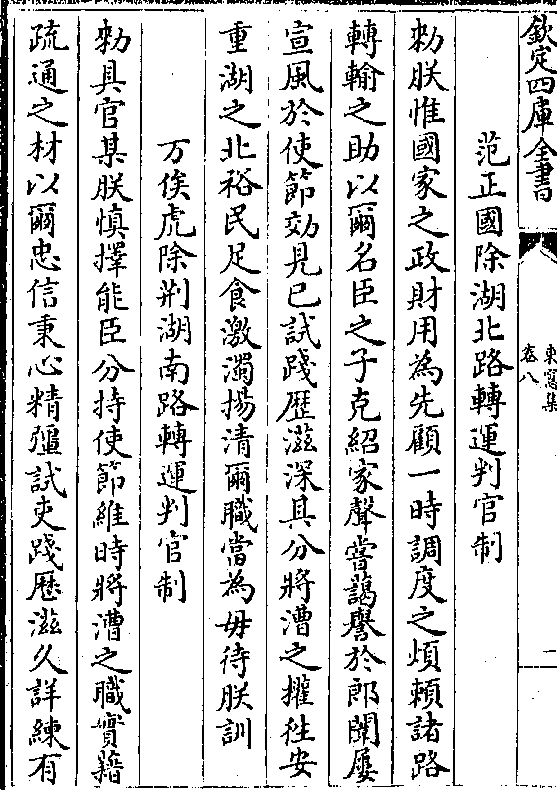 欽定四庫全書
東窗集
卷八
一
范正國除湖北路轉運判官制
勑朕惟國家之政財用為先顧一時調度之煩頼諸路
轉輸之助以爾名臣之子克紹家聲嘗藹譽於郎闈屢
宣風於使節効見已試踐歴滋深具分將漕之權徃安
重湖之北裕民足食激濁揚清爾職當為毋待朕訓
万俟虎除荆湖南路轉運判官制
勑具官某朕慎擇能臣分持使節維時將漕之職實藉
疏通之材以爾忠信秉心精彊試吏踐歴滋久詳練有